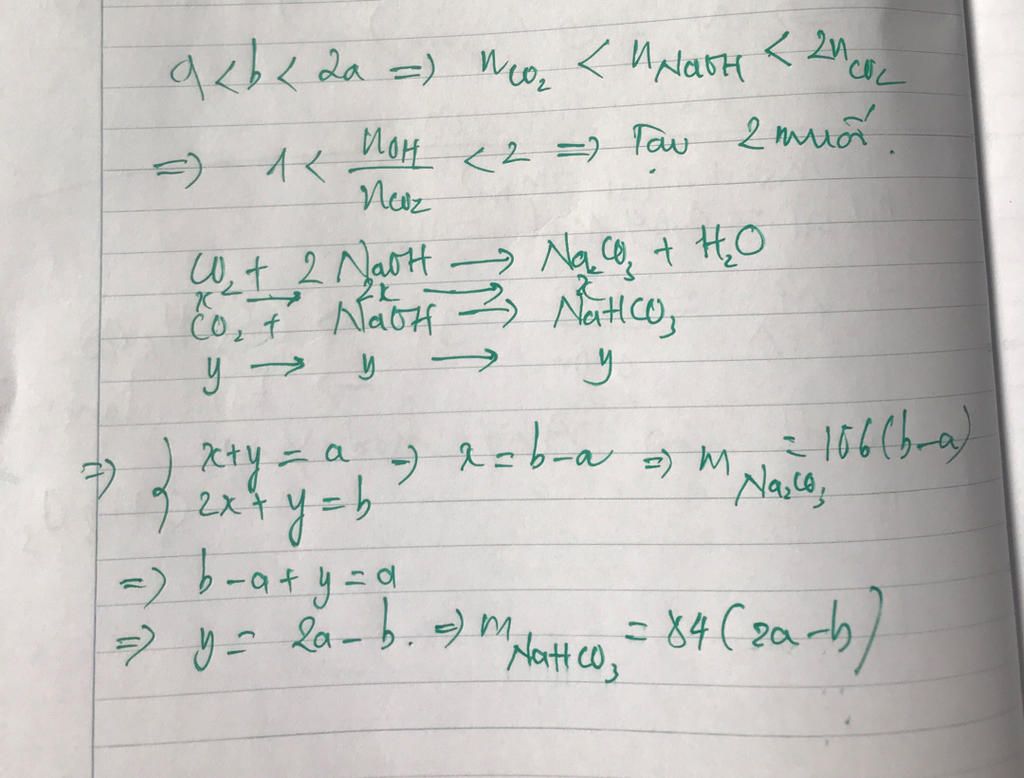 a < b < 2a => nCO₂ < nNaOH < 2nCO₂
=> 1 < nOH/nCO₂ < 2 => Tạo 2 muối.
CO₂ + 2 NaOH → Na₂CO₃ + H₂O
x → 2x → x
CO₂ + NaOH → NaHCO₃
y → y → y
=> { x+y = a → x = b-a => m Na₂CO₃ = 106(b-a)
2x + y = b
=> b-a+y = a
=> y = 2a-b. => m NaHCO₃ = 84(2a-b)